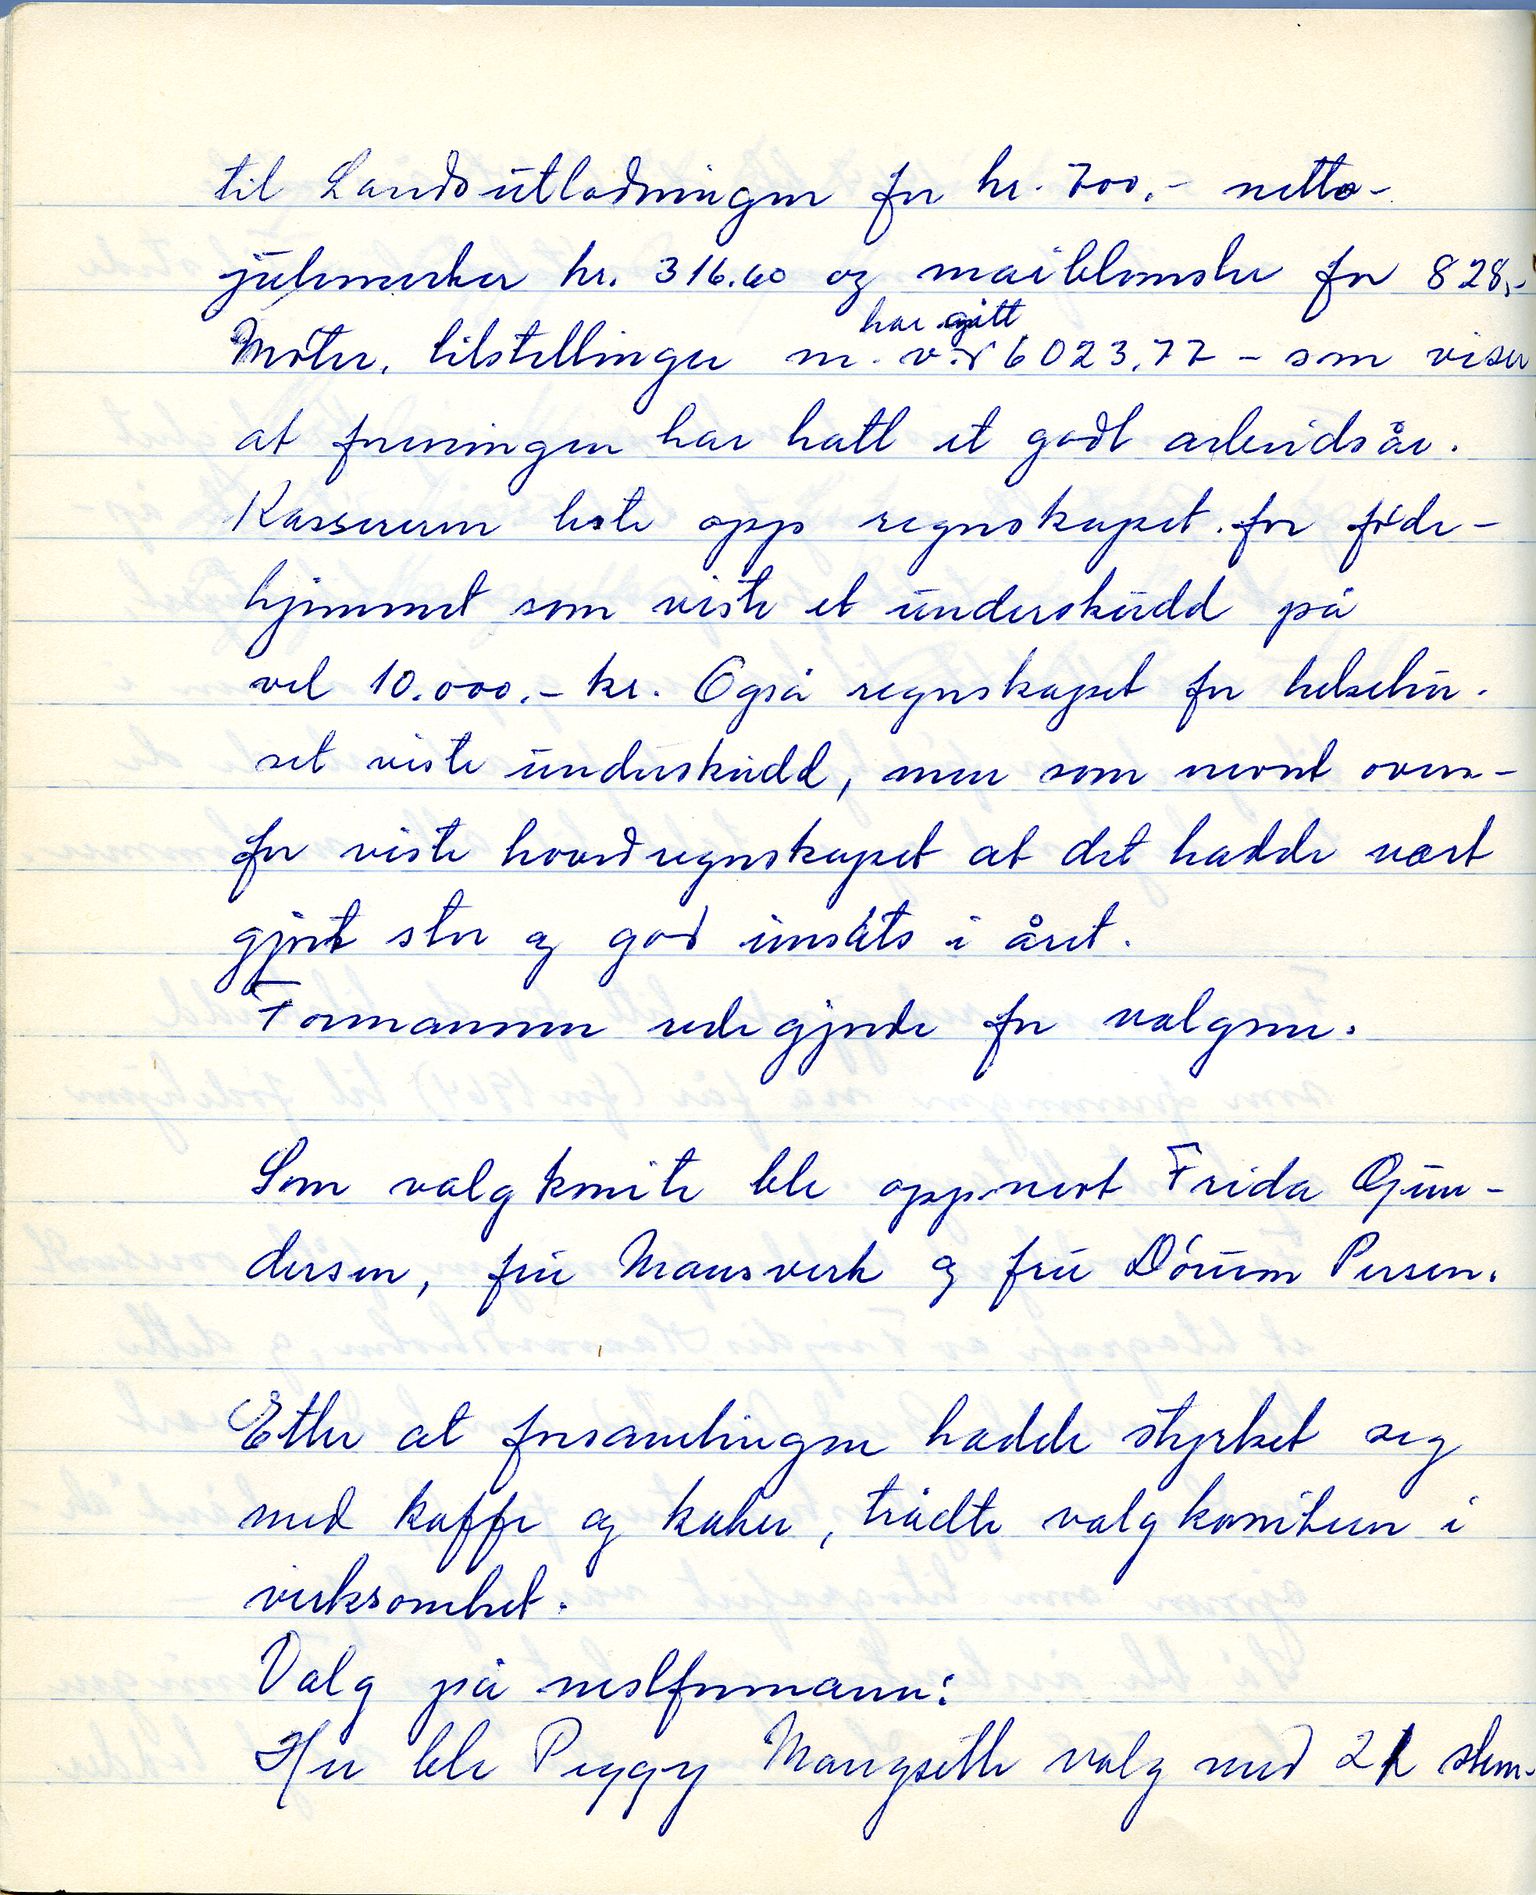 til Landsutlodningen for kr. 700.- netto-
julemerker kr. 316.60 og maiblomster for 828,-
har gått
Møter, tilstellinger m. v. 6023,77 - som viser
at foreningen har hatt et godt arbeidsår.
Kassereren leste opp regnskapet for føde-
hjemmet som viste et underskudd på
vel 10.000.- kr. Også regnskapet for helsehu-
set viste underskudd, men som nevnt oven-
for viste hovedregnskapet at det hadde vært
gjort stor og god innsats i året.
Formannen redegjorde for valgene.
Som valgkomite ble oppnevnt Frida Gun-
dersen, fru Mansverk og fru Dórum Persen.
Etter at forsamlingen hadde styrket seg
med kaffe og kaker, trådte valgkomiteen i
virksomhet.
Valg på nestformann:
Her ble Peggy Mangseth valg med 21 stem-